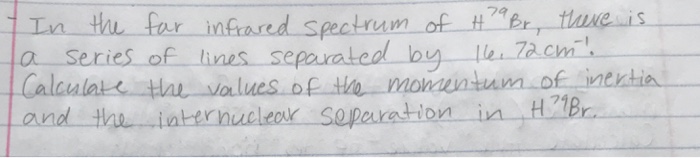 - In the far infrared spectrum of H⁷⁹Br, there is
a series of lines separated by 16.72cm⁻¹.
Calculate the values of the momentum of inertia
and the internuclear separation in H⁷⁹Br.